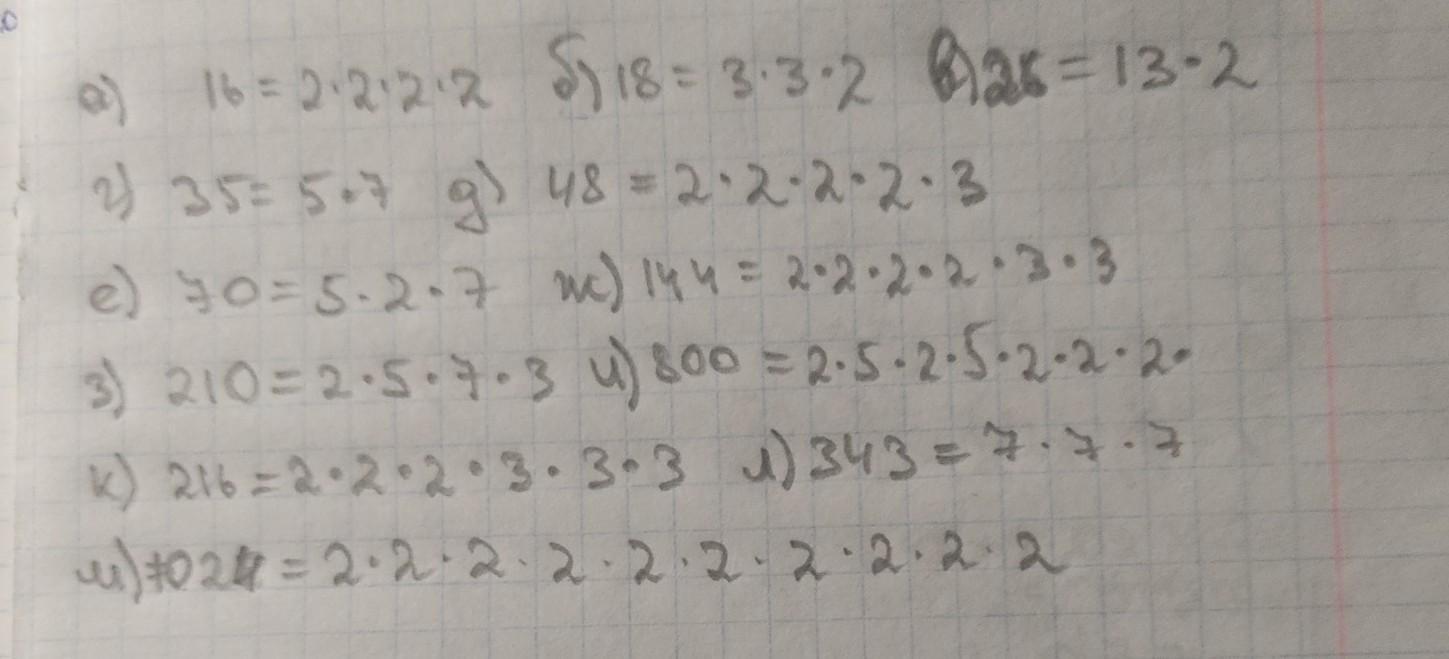 а) 16 = 2·2·2·2 б) 18 = 3·3·2 в) 26 = 13·2
г) 35 = 5·7 д) 48 = 2·2·2·2·3
е) 70 = 5·2·7 ж) 144 = 2·2·2·2·3·3
з) 210 = 2·5·7·3 и) 800 = 2·5·2·5·2·2·2·
к) 216 = 2·2·2·3·3·3 л) 343 = 7·7·7
м) 1024 = 2·2·2·2·2·2·2·2·2·2